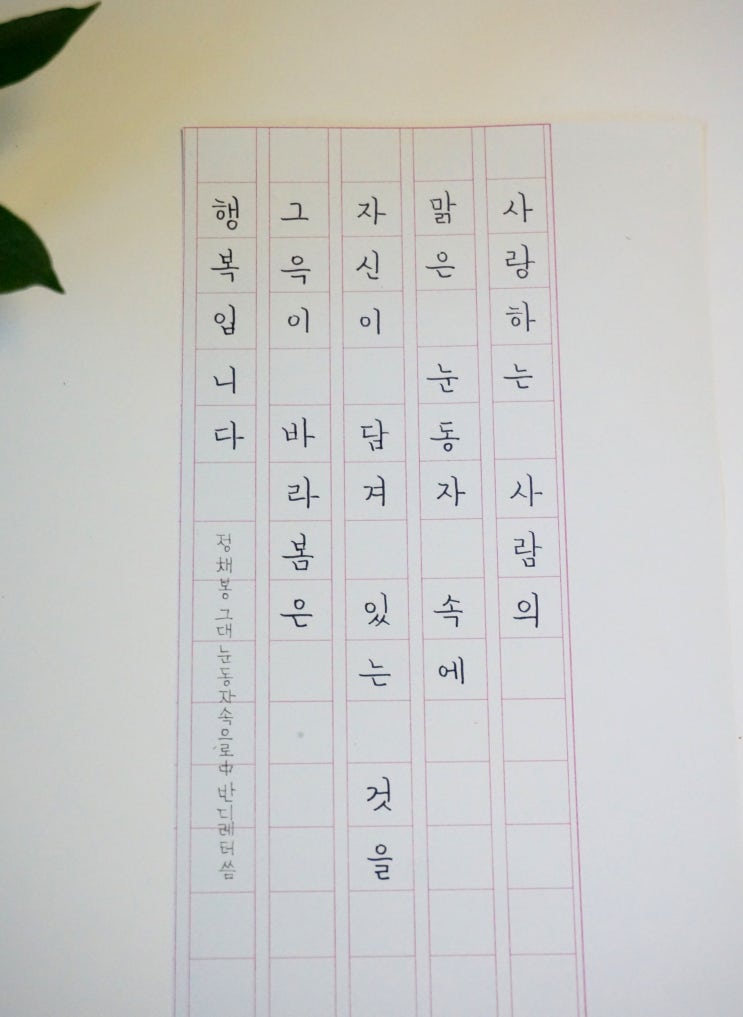 사랑하는 사람의
맑은 눈동자 속에
자신이 담겨 있는 것을
그윽이 바라봄은
행복입니다
정채봉 그대 눈동자 속으로 中 반디레터 씀